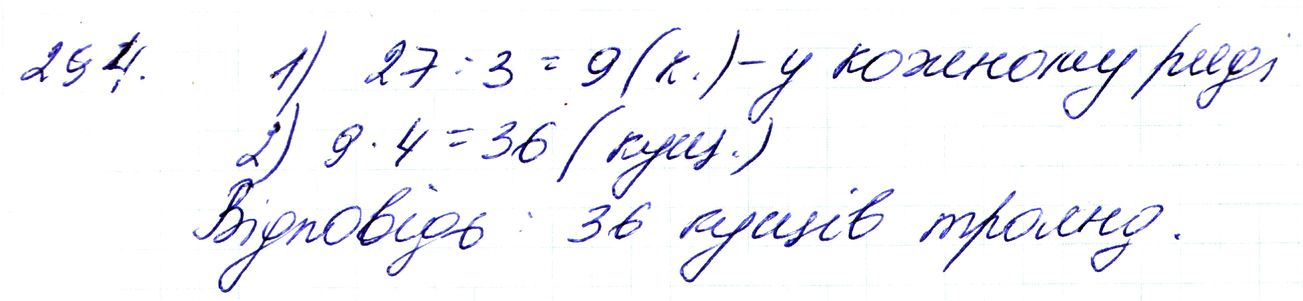 294. 1) 27 : 3 = 9 (к.) - у кожному ряді
2) 9 · 4 = 36 (кущ.)
Відповідь: 36 кущів троянд.